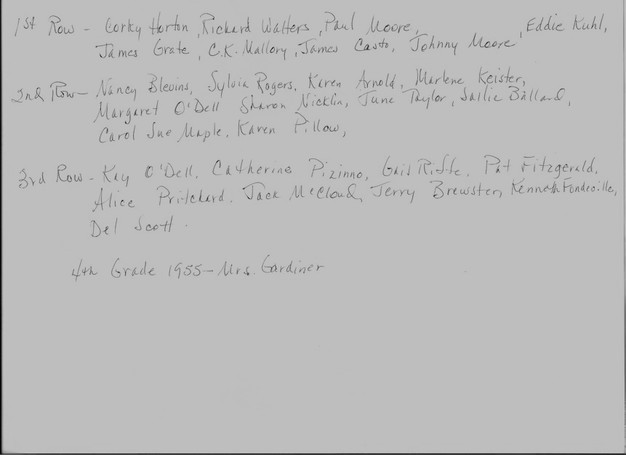 1st Row - Corky Horton, Richard Walters, Paul Moore, Eddie Kuhl,
James Grate, C.K. Mallory, James Casto, Johnny Moore
2nd Row - Nancy Blevins, Sylvia Rogers, Karen Arnold, Marlene Keister,
Margaret O'Dell Sharon Nicklin, June Taylor, Sallie Ballard,
Carol Sue Maple, Karen Pillow,
3rd Row - Kay O'Dell, Catherine Pizinno, Gail Riffe, Pat Fitzgerald,
Alice Pritchard, Jack McCloud, Jerry Brewster, Kenneth
Del Scott.
4th Grade 1955 - Mrs. Gardiner